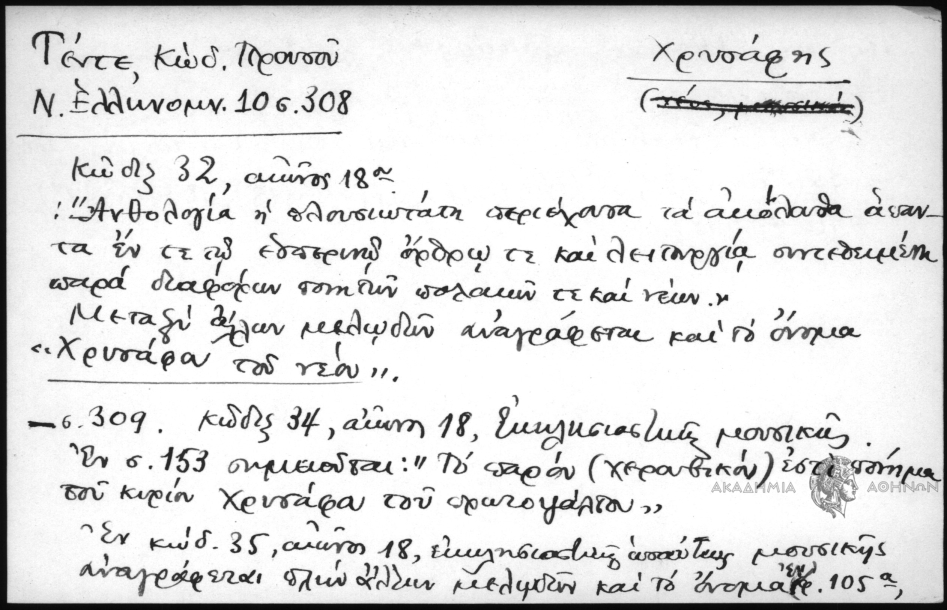 Τέντε, Κώδ. Προυσοῦ
Ν. Ἑλληνομν. 10 σ. 308
Χρυσάφης
(νέος, μουσικός)
Κῶδιξ 32, αἰῶνος 18ου
"Ἀνθολογία ἡ πλουσιωτάτη περιέχουσα τά ἀκόλουθα ἅπαν-
τα ἔν τε τῷ ἑσπερινῷ ὄρθρῳ τε καί λειτουργίᾳ συντεθειμένη
παρά διαφόρων ποιητῶν παλαιῶν τε καί νέων."
Μεταξύ ἄλλων μελῳδῶν ἀναγράφεται καί τό ὄνομα
"Χρυσάφα τοῦ νέου".
– σ. 309. Κῶδιξ 34, αἰῶνος 18, Ἐκκλησιαστικῆς μουσικῆς.
Ἐν σ. 153 σημειοῦται: "Τό παρόν (χερουβικόν) ἐστί ποίημα
τοῦ κυρίου Χρυσάφα τοῦ πρωτοψάλτου"
ΑΚΑΔΗΜΙΑ ΑΘΗΝΩΝ
Ἐν κώδ. 35, αἰῶνος 18, ἐκκλησιαστικῆς μουσικῆς
ἀναγράφεται πλήν ἄλλων μελῳδῶν καί τό ὄνομα 105α,